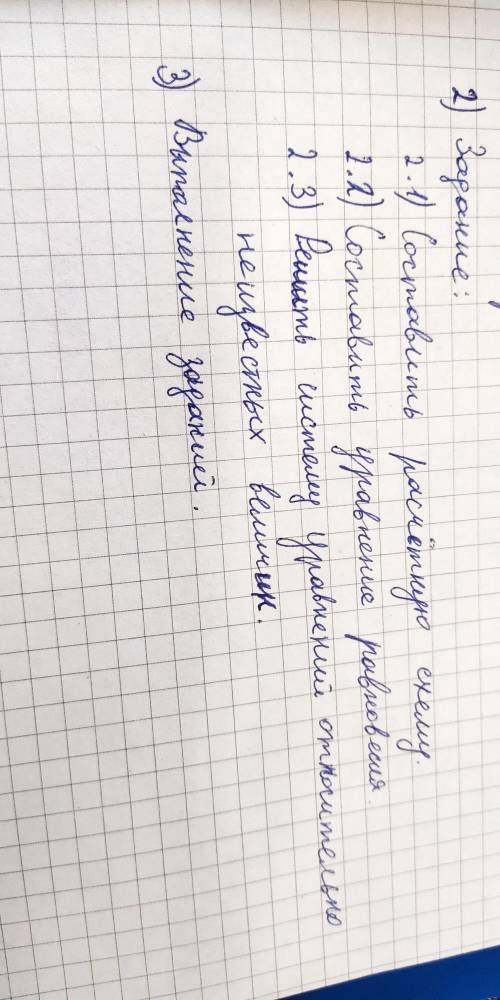 2) Задание:
2.1) Составить расчётную схему.
2.2) Составить уравнение равновесия.
2.3) Решить систему уравнений относительно
неизвестных величин.
3) Выполнение заданий.